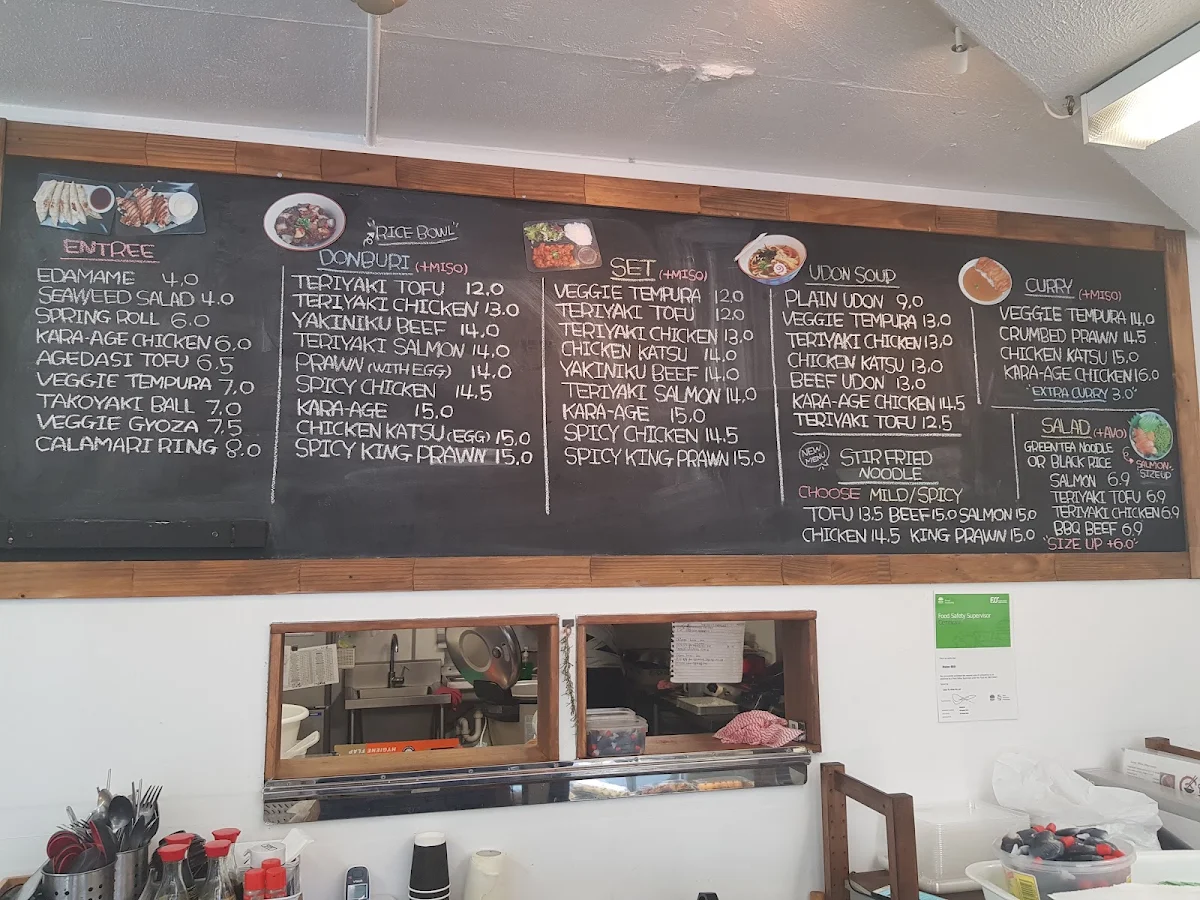 ENTREE
EDAMAME 4.0
SEAWEED SALAD 4.0
SPRING ROLL 6.0
KARA-AGE CHICKEN 6.0
AGEDASI TOFU 6.5
VEGGIE TEMPURA 7.0
TAKOYAKI BALL 7.0
VEGGIE GYOZA 7.5
CALAMARI RING 8.0
"RICE BOWL"
DONBURI (+MISO)
TERIYAKI TOFU 12.0
TERIYAKI CHICKEN 13.0
YAKINIKU BEEF 14.0
TERIYAKI SALMON 14.0
PRAWN (WITH EGG) 14.0
SPICY CHICKEN 14.5
KARA-AGE 15.0
CHICKEN KATSU (EGG) 15.0
SPICY KING PRAWN 15.0
SET (+MISO)
VEGGIE TEMPURA 12.0
TERIYAKI TOFU 12.0
TERIYAKI CHICKEN 13.0
CHICKEN KATSU 14.0
YAKINIKU BEEF 14.0
TERIYAKI SALMON 14.0
KARA-AGE 15.0
SPICY CHICKEN 14.5
SPICY KING PRAWN 15.0
UDON SOUP
PLAIN UDON 9.0
VEGGIE TEMPURA 13.0
TERIYAKI CHICKEN 13.0
CHICKEN KATSU 13.0
BEEF UDON 13.0
KARA-AGE CHICKEN 14.5
TERIYAKI TOFU 12.5
NEW MENU
STIR FRIED
NOODLE
CHOOSE MILD/SPICY
TOFU 13.5 BEEF 15.0 SALMON 15.0
CHICKEN 14.5 KING PRAWN 15.0
CURRY (+MISO)
VEGGIE TEMPURA 14.0
CRUMBED PRAWN 14.5
CHICKEN KATSU 15.0
KARA-AGE CHICKEN 16.0
"EXTRA CURRY 3.0"
SALAD (+AVO)
GREEN TEA NOODLE
OR BLACK RICE
SALMON,
SIZE UP
SALMON 6.9
TERIYAKI TOFU 6.9
TERIYAKI CHICKEN 6.9
BBQ BEEF 6.9
"SIZE UP +6.0"
Food Safety Supervisor
HYGIENE FLAP